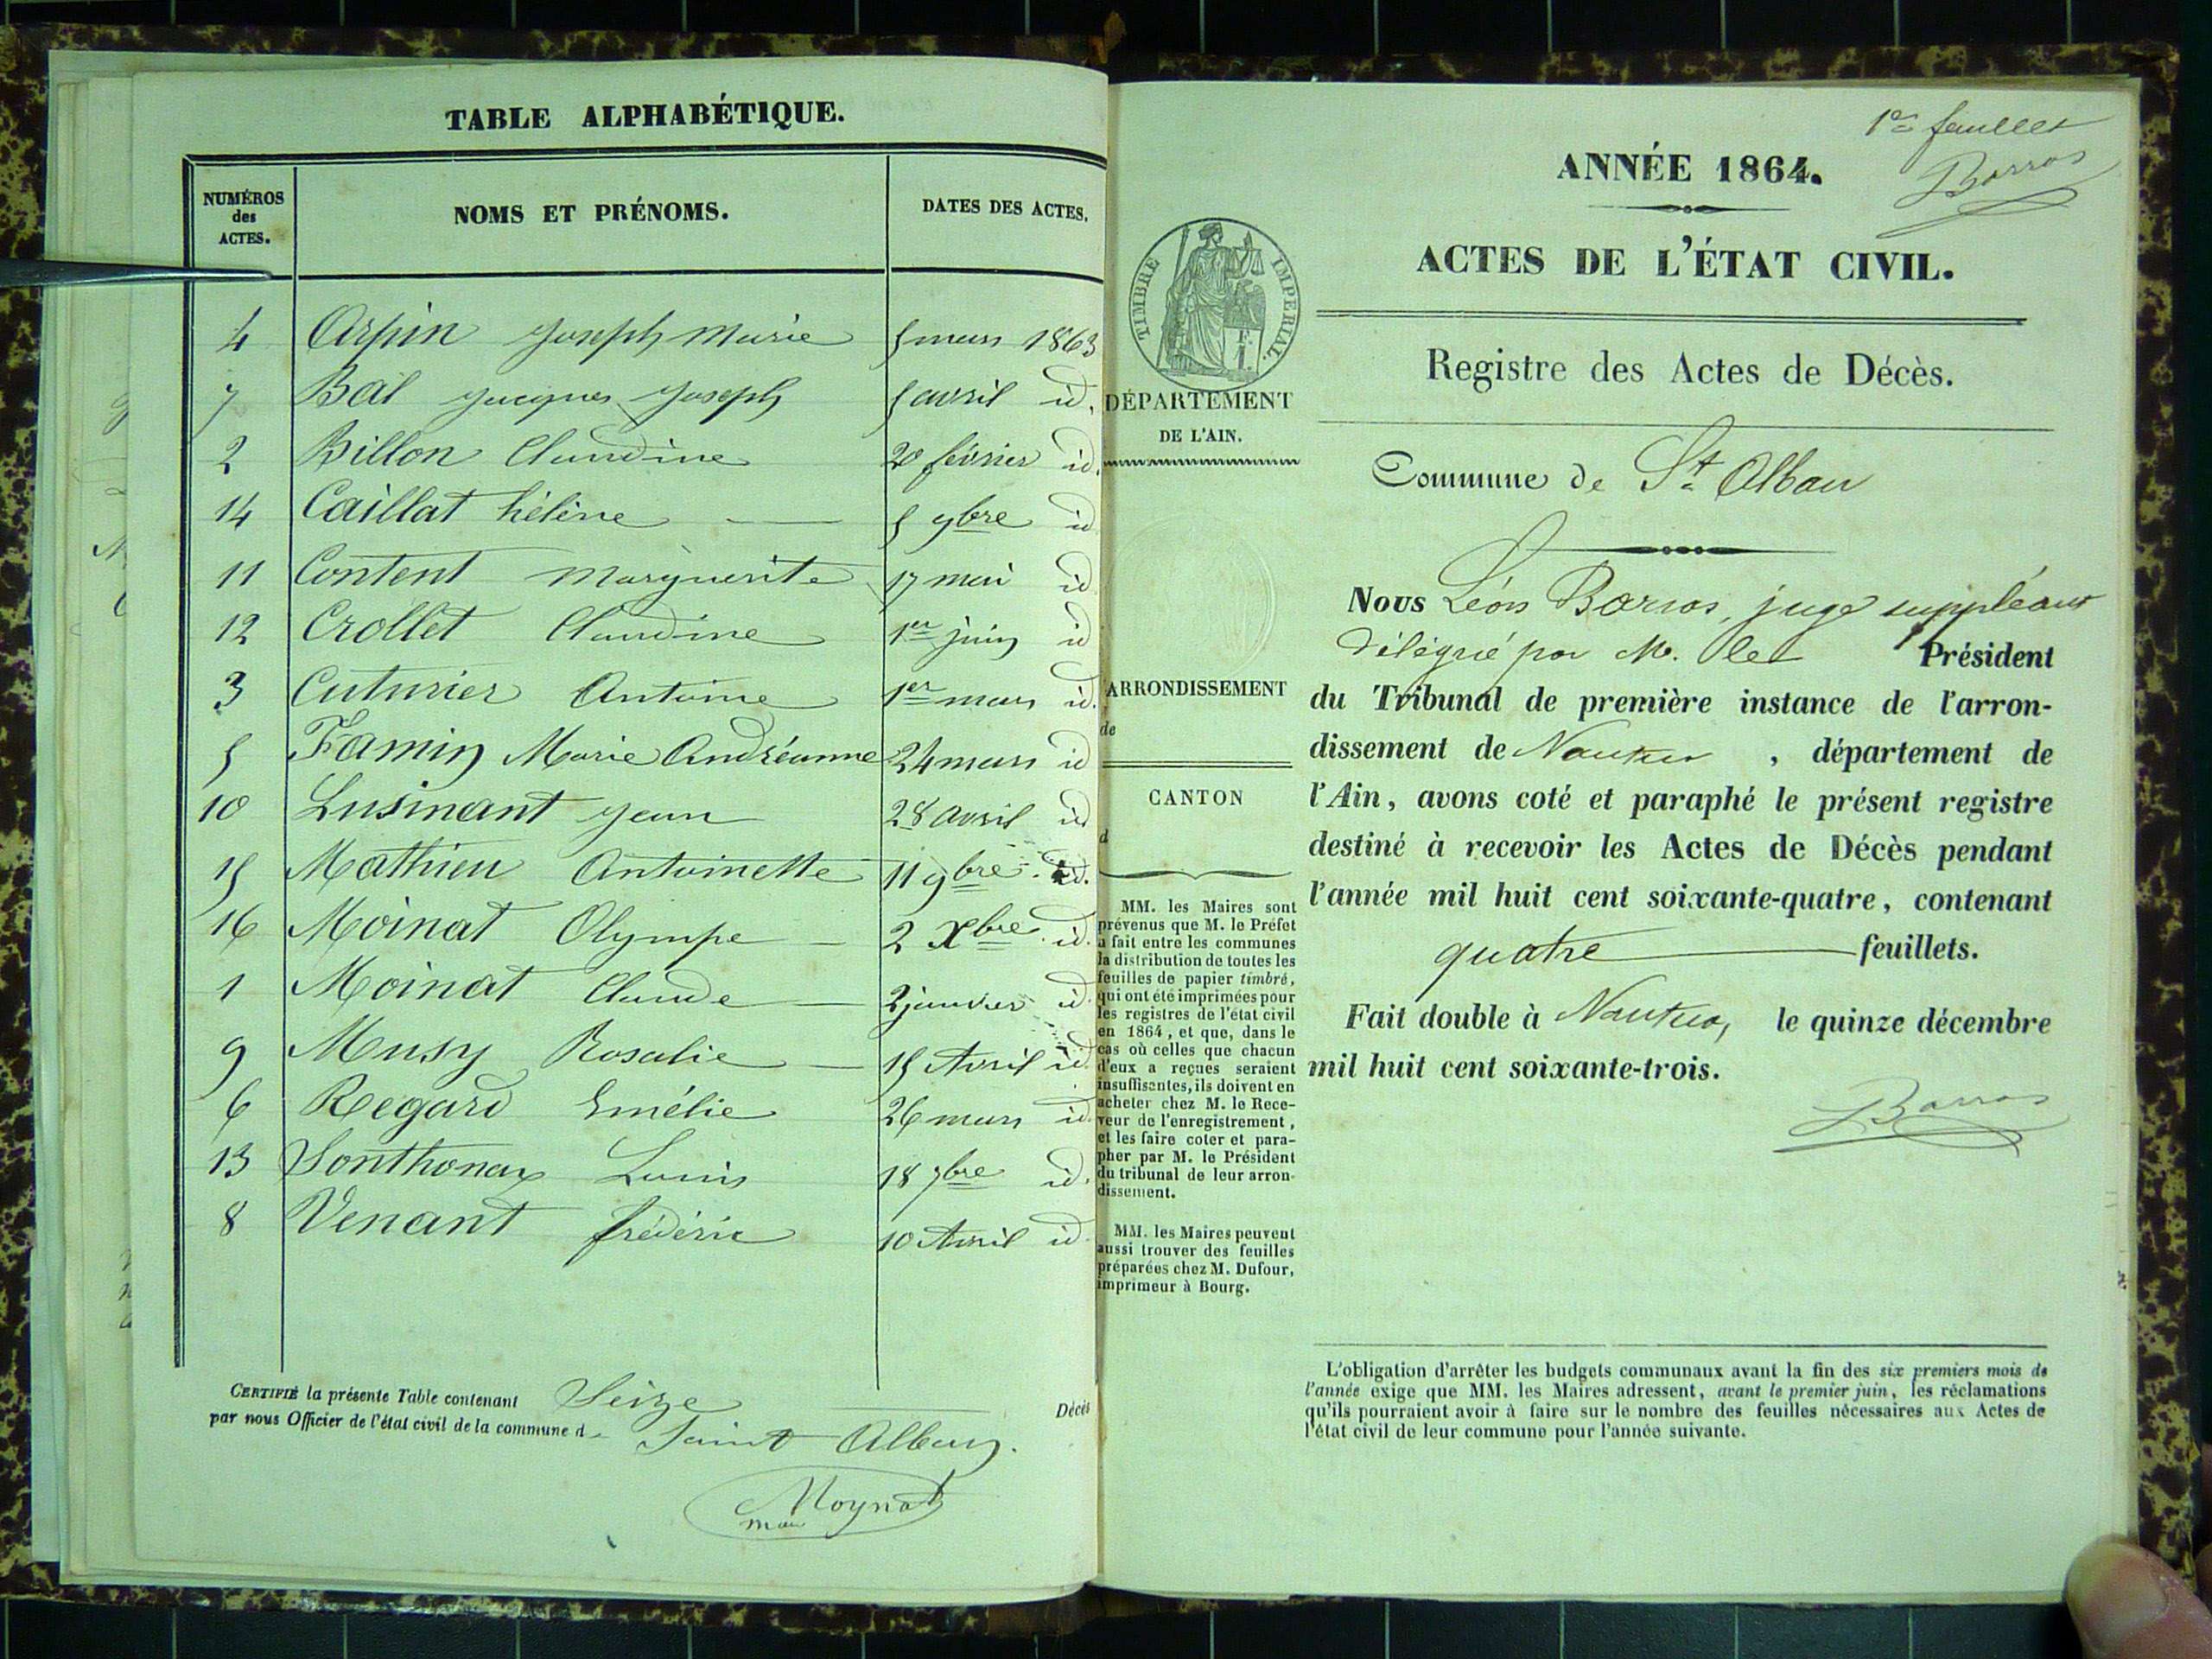 TABLE ALPHABÉTIQUE.
NUMÉROS
des
ACTES.
NOMS ET PRÉNOMS.
DATES DES ACTES.
4 Arpin Joseph Marie 5 mars 1863
7 Bal Jacques Joseph 5 avril id.
2 Billon Claudine 20 février id.
14 Caillat hélène 5 9bre id
11 Content Marguerite 17 mai id
12 Crollet Claudine 1er juin id
3 Cuturier Antoine 1er mars id.
5 Famin Marie Andréanne 24 mars id
10 Lusinant Jean 28 avril id
15 Mathieu Antoinette 11 9bre id.
16 Moinat Olympe 2 Xbre id.
1 Moinat Claude 2 janvier id.
9 Musy Rosalie 15 Avril id.
6 Regard Emélie 26 mars id.
13 Sonthonax Louis 18 7bre id.
8 Venant frédéric 10 Avril id.
CERTIFIÉ la présente Table contenant Seize Décès
par nous Officier de l'état civil de la commune de Saint Alban.
Moynat
maire
1er feuillet
Barros
ANNÉE 1864.
ACTES DE L'ÉTAT CIVIL.
TIMBRE IMPÉRIAL.
DÉPARTEMENT
DE L'AIN.
ARRONDISSEMENT
de
CANTON
d
MM. les Maires sont
prévenus que M. le Préfet
a fait entre les communes
la distribution de toutes les
feuilles de papier timbré,
qui ont été imprimées pour
les registres de l'état civil
en 1864, et que, dans le
cas où celles que chacun
d'eux a reçues seraient
insuffisantes, ils doivent en
acheter chez M. le Rece-
veur de l'enregistrement,
et les faire coter et para-
pher par M. le Président
du tribunal de leur arron-
dissement.
MM. les Maires peuvent
aussi trouver des feuilles
préparées chez M. Dufour,
imprimeur à Bourg.
Registre des Actes de Décès.
Commune de St Alban
Nous Léon Barros, juge suppléant
délégué par M. le Président
du Tribunal de première instance de l'arron-
dissement de Nantua, département de
l'Ain, avons coté et paraphé le présent registre
destiné à recevoir les Actes de Décès pendant
l'année mil huit cent soixante-quatre, contenant
quatre feuillets.
Fait double à Nantua, le quinze décembre
mil huit cent soixante-trois.
Barros
L'obligation d'arrêter les budgets communaux avant la fin des six premiers mois de
l'année exige que MM. les Maires adressent, avant le premier juin, les réclamations
qu'ils pourraient avoir à faire sur le nombre des feuilles nécessaires aux Actes de
l'état civil de leur commune pour l'année suivante.